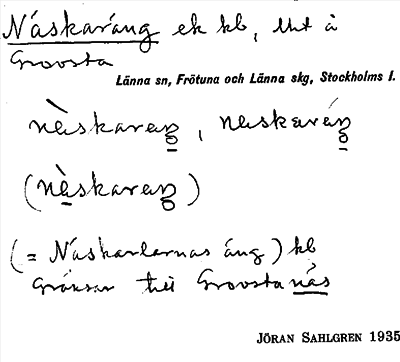 Näskaräng ek kb, Ut å
Grovsta
Länna sn, Frötuna och Länna skg, Stockholms l.
nàskaraŋ, naskaráŋ
(nàskaraŋ)
(= Näskarlarnas äng) kb
Gränsar till Grovstanäs
JÖRAN SAHLGREN 1935